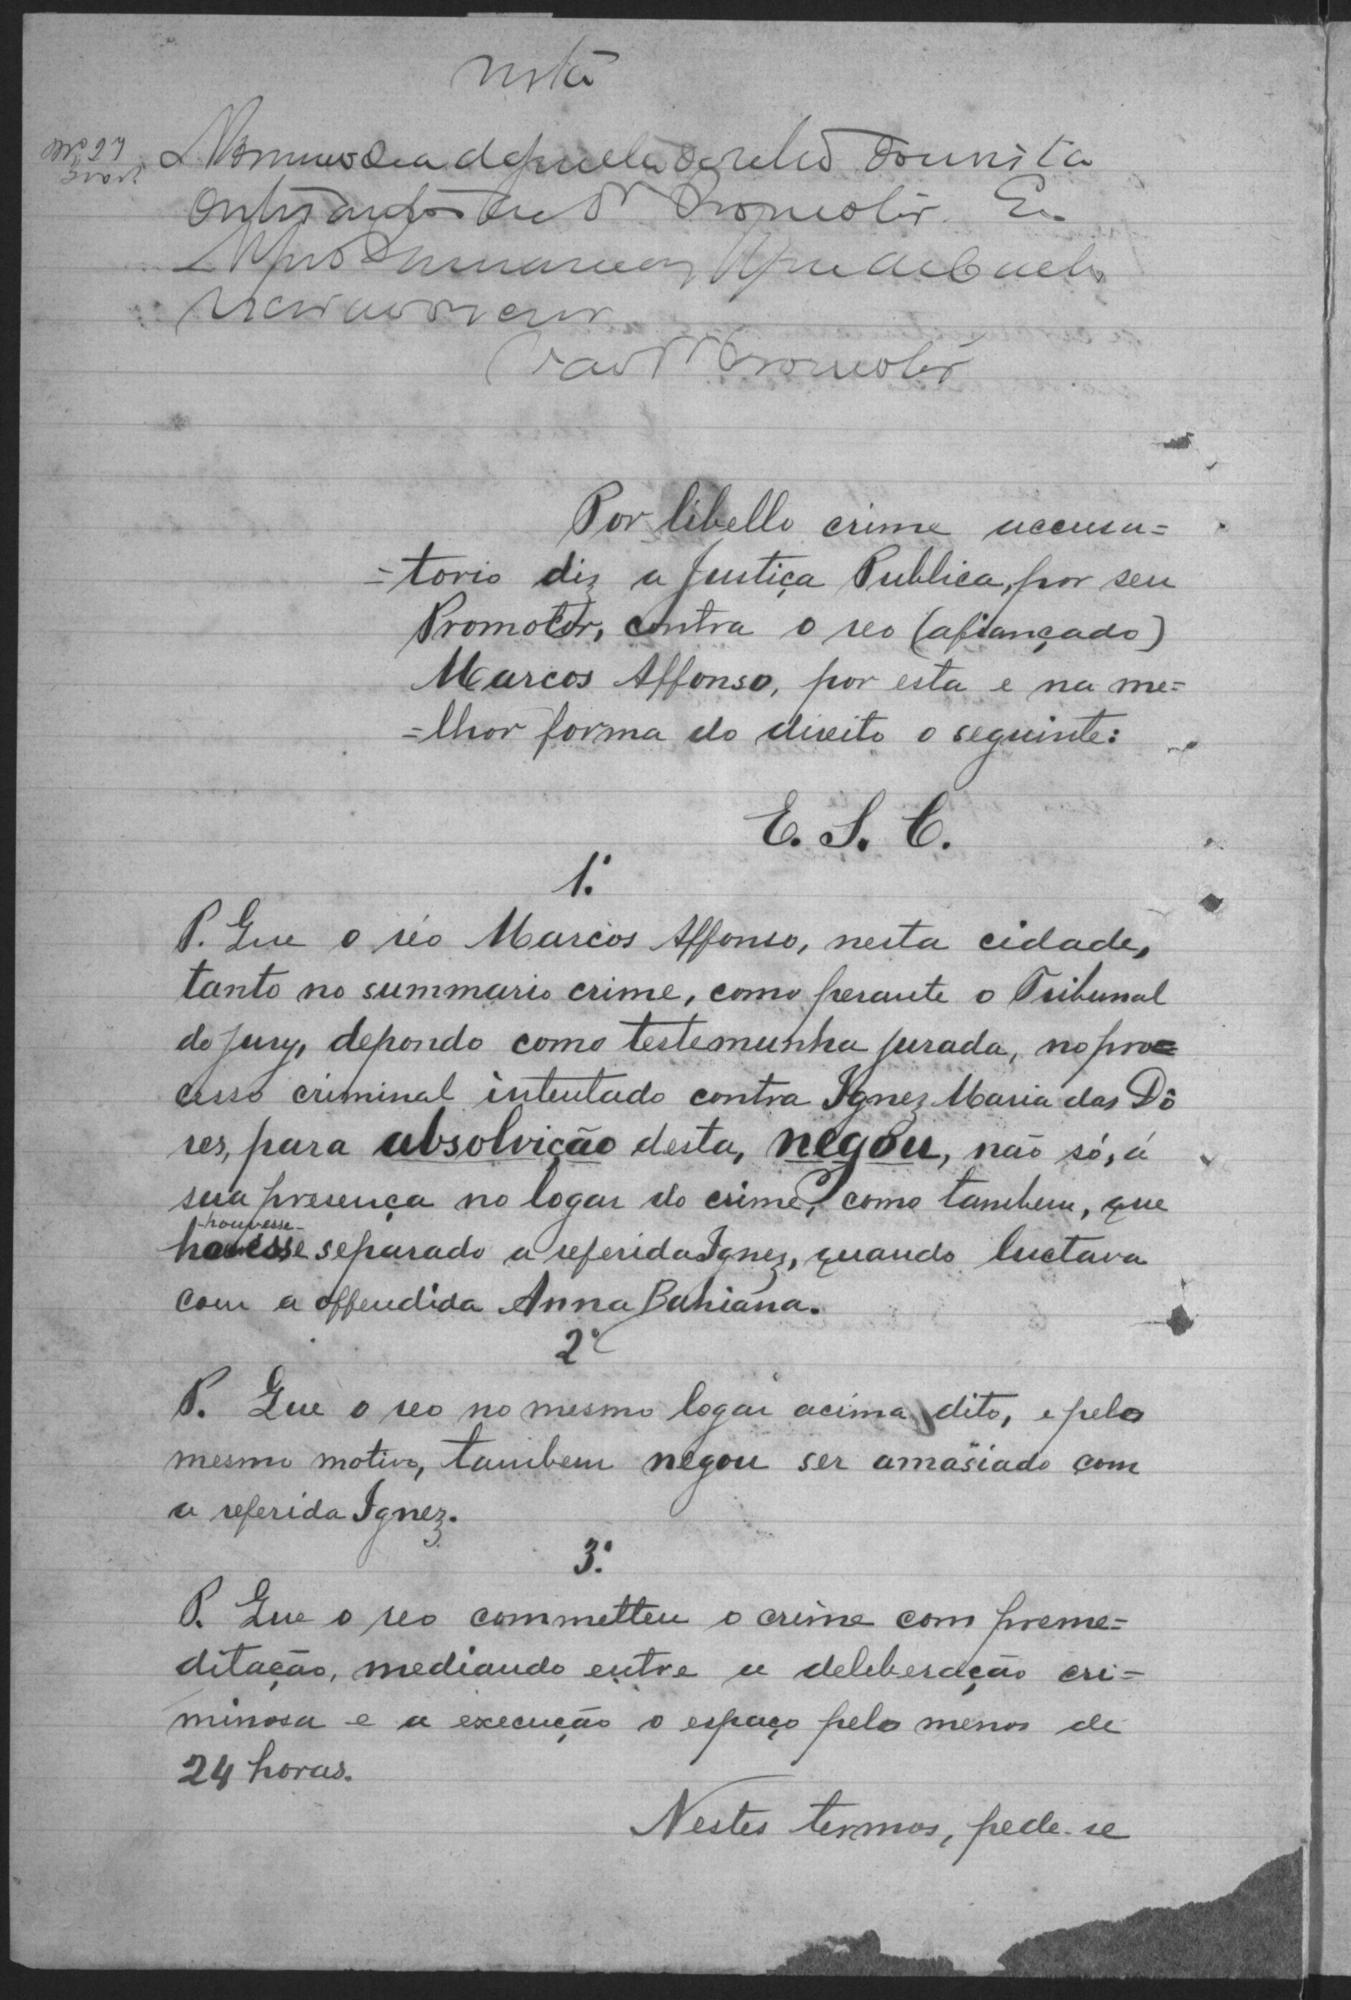 Vista
No mesmo dia
Promotor. Eu
Promotor
Por libello crime accusa=
=torio diz a Justiça Publica, por seu
Promotor, contra o reo (afiançado)
Marcos Affonso, por esta e na me=
=lhor forma do direito o seguinte:
E. S. C.
1º
P. Que o réo Marcos Affonso, nesta cidade,
tanto no summario crime, como perante o Tribunal
do jury, depondo como testemunha jurada, no pro=
cesso criminal intentado contra Ignez Maria das Dô
res, para absolvição desta, negou, não só, á
sua presença no logar do crime, como tambem, que
houvesse
separado a referida Ignez, quando luctava
com a offendida Anna Bahiana.
2º
P. Que o reo no mesmo logar acima dito, e pelo
mesmo motivo, tambem negou ser amasiado com
a referida Ignez.
3º
P. Que o reo commetteu o crime com preme=
ditação, mediando entre a deliberação cri=
minosa e a execução o espaço pelo menos de
24 horas.
Nestes termos, pede-se